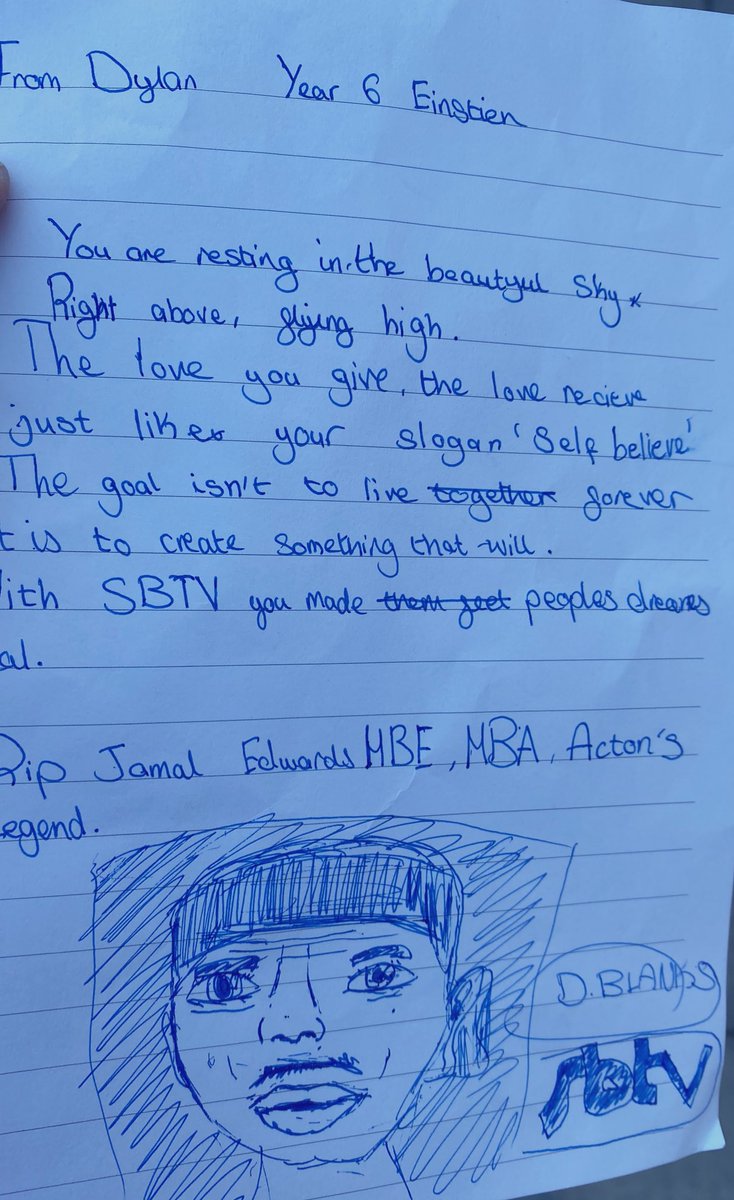 From Dylan Year 6 Einstien
You are resting in the beautyul Sky
Right above, flying high.
The love you give, the love recieve
just like your slogan 'Self believe'
The goal isn't to live together forever
t is to create something that will.
ith SBTV you made them feet peoples dreams
al.
Rip Jamal Edwards MBE, MBA, Acton's
egend.
D.BLANKS
sbtv